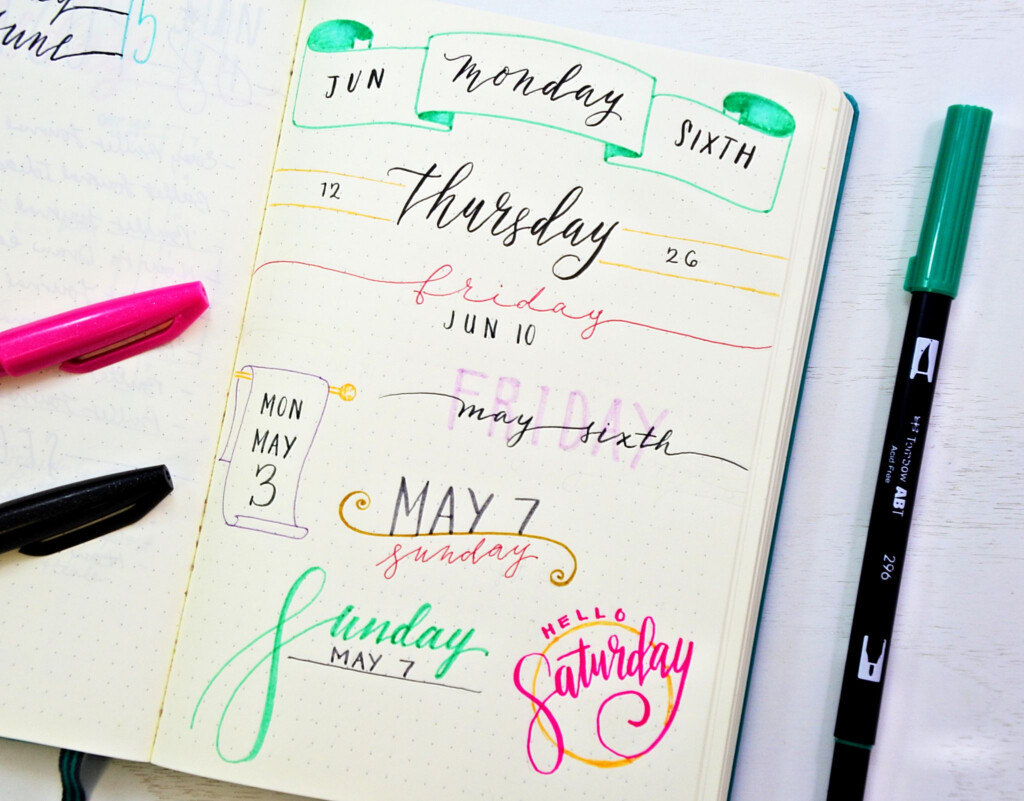 June
15
JUN
monday
SIXTH
12
Thursday
26
friday
JUN 10
MON
MAY
3
FRIDAY
may sixth
MAY 7
sunday
Sunday
MAY 7
HELLO
Saturday
Tombow
ABT
Acid Free
296